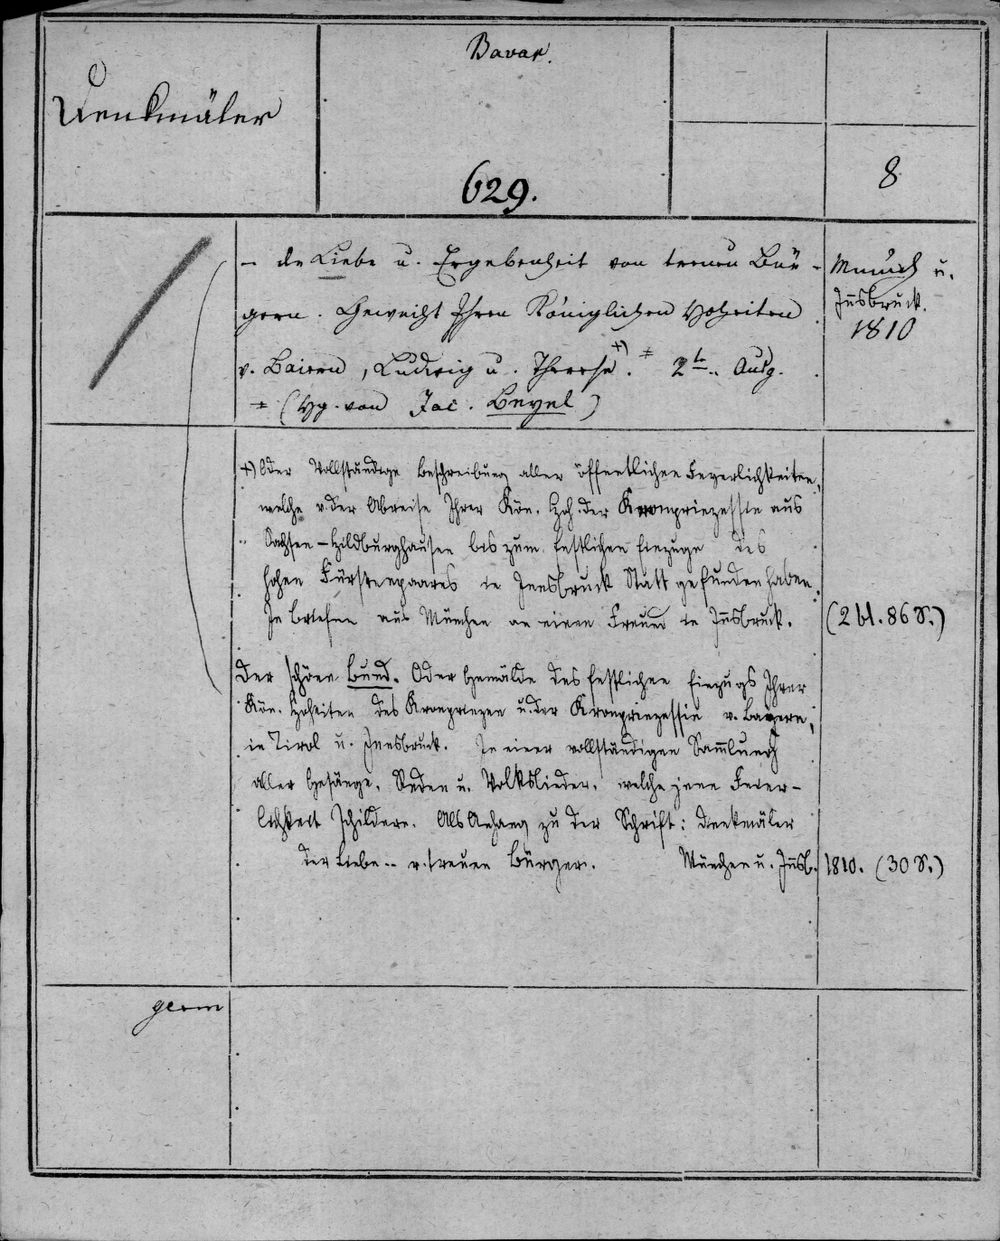 Bavar.
Denkmäler
629.
8
– der Liebe u. Ergebenheit von treuen Bür-
gern. Geweiht Ihren Königlichen Hoheiten
v. Baiern, Ludwig u. Therese +). ≠ 2te Ausg.
≠ (Hg. von Jac. Beyel)
Münch u.
Insbruck.
1810
+) Oder Vollständige Beschreibung aller öffentlichen Feyerlichkeiten,
welche v. der Abreise Ihrer Kön. Hoh. der Kronprinzessin aus
Sachsen-Hildburghausen bis zum festlichen Einzuge des
hohen Fürstenpaares in Innsbruck Statt gefunden haben.
In Briefen aus München an einen Freund in Insbruck.
(2 bl. 86 S.)
Der schöne Bund. Oder Gemälde des festlichen Einzugs Ihrer
Kön. Hoheiten des Kronprinzen u. der Kronprinzessin v. Bayern,
in Tirol u. Innsbruck. In einer vollständigen Sammlung
aller Gesänge, Reden u. Volkslieder, welche jene Feier-
lichkeit schildern. Als Anhang zu der Schrift: Denkmäler
der Liebe -- v. treuen Bürger. München u. Insb. 1810. (30 S.)
germ